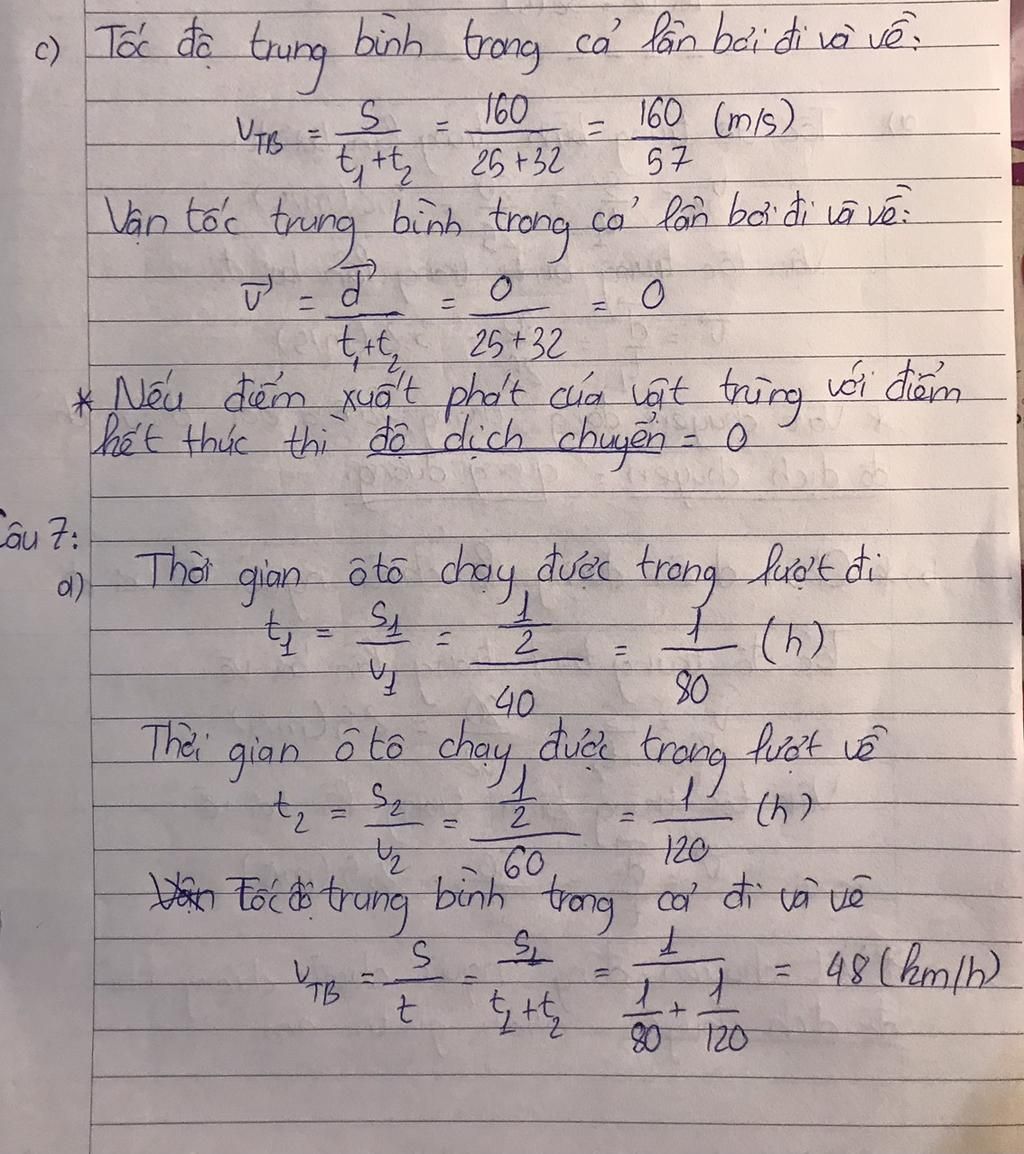 c) Tốc độ trung bình trong cả lần bơi đi và về:
v_TB = S/(t₁+t₂) = 160/(25+32) = 160/57 (m/s)
Vận tốc trung bình trong cả lần bơi đi và về:
v⃗ = d⃗/(t₁+t₂) = 0/(25+32) = 0
* Nếu điểm xuất phát của vật trùng với điểm
kết thúc thì độ dịch chuyển = 0
Câu 7:
a) Thời gian ôtô chạy được trong lượt đi
t₁ = S₁/v₁ = (1/2)/40 = 1/80 (h)
Thời gian ôtô chạy được trong lượt về
t₂ = S₂/v₂ = (1/2)/60 = 1/120 (h)
Tốc độ trung bình trong cả đi và về
v_TB = S/t = S₁/(t₁+t₂) = 1/(1/80 + 1/120) = 48 (km/h)